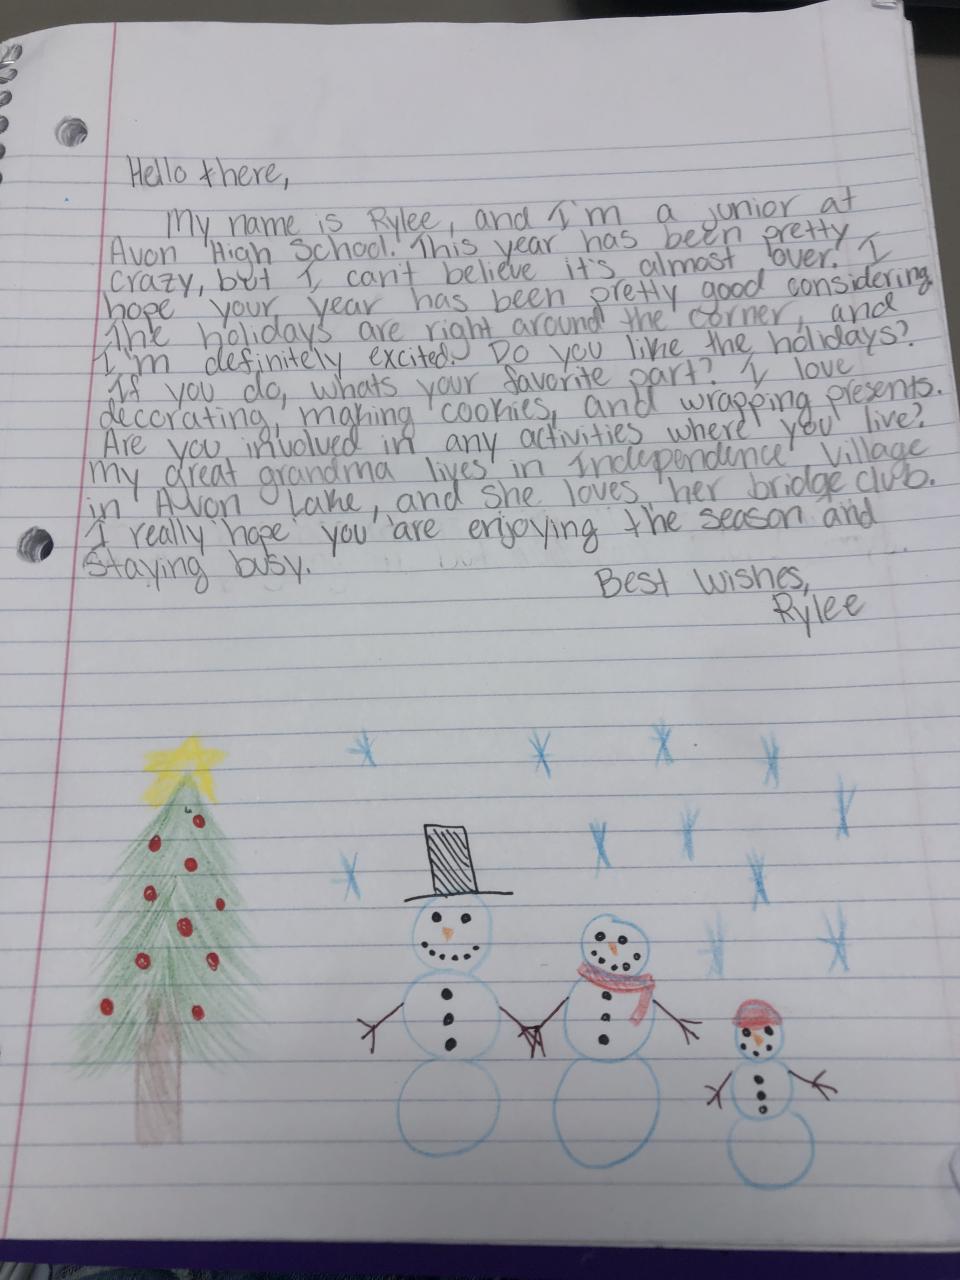 Hello there,
My name is Rylee, and I'm a junior at
Avon High School. This year has been pretty
crazy, but I can't believe it's almost over. I
hope your year has been pretty good considering
the holidays are right around the corner, and
I'm definitely excited. Do you like the holidays?
If you do, whats your favorite part? I love
decorating, making cookies, and wrapping presents.
Are you involved in any activities where you live?
My great grandma lives in Independence Village
in Avon Lake, and she loves her bridge club.
I really hope you are enjoying the season and
staying busy.
Best Wishes,
Rylee